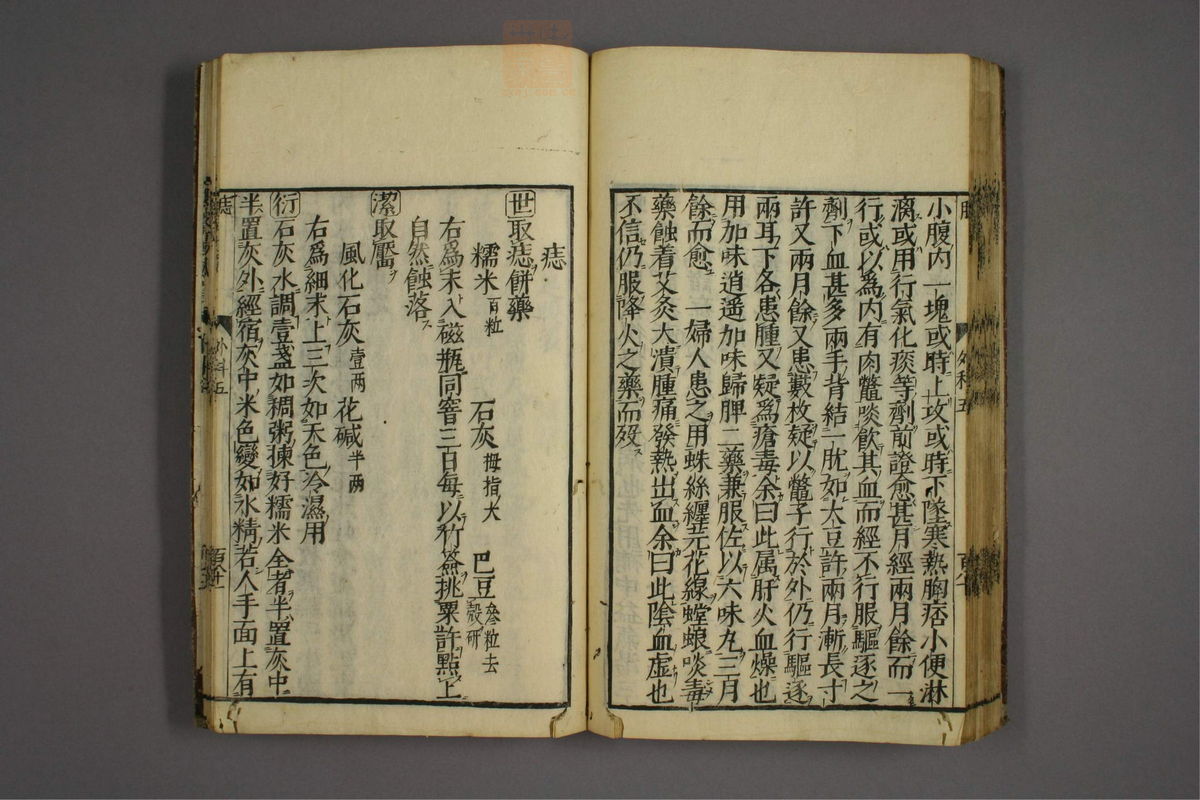 小腹内一塊或時上攻或時下墜寒熱胸痞小便淋
漓或用行氣化痰等劑前證愈甚月經兩月餘而一
行或以爲内有肉鱉啖飲其血而經不行服驅逐之
劑下血甚多兩手背結一肬如大豆許兩月漸長寸
許又兩月餘又患數枚疑以鱉子行於外仍行驅逐
兩耳下各患腫又疑爲瘡毒余曰此属肝火血燥也
用加味逍遥加味歸脾二藥兼服佐以六味丸三月
餘而愈 一婦人患之用蛛絲纏芫花線螳蜋啖毒
藥蝕着艾灸大潰腫痛發熱出血余曰此陰血虚也
不信仍服降火之藥而殁
外科五
痣
世取痣餅藥
糯米百粒 石灰拇指大 巴豆參粒去殻研
右爲末入磁瓶同窨三日每以竹簽挑粟許點上
自然蝕落
潔取靨
風化石灰壹两 花碱半两
右爲細末上三次如天色冷濕用
衍石灰水調壹盞如稠粥揀好糯米全者半置灰中
半置灰外經宿灰中米色變如水精若人手面上有
痣
外科五